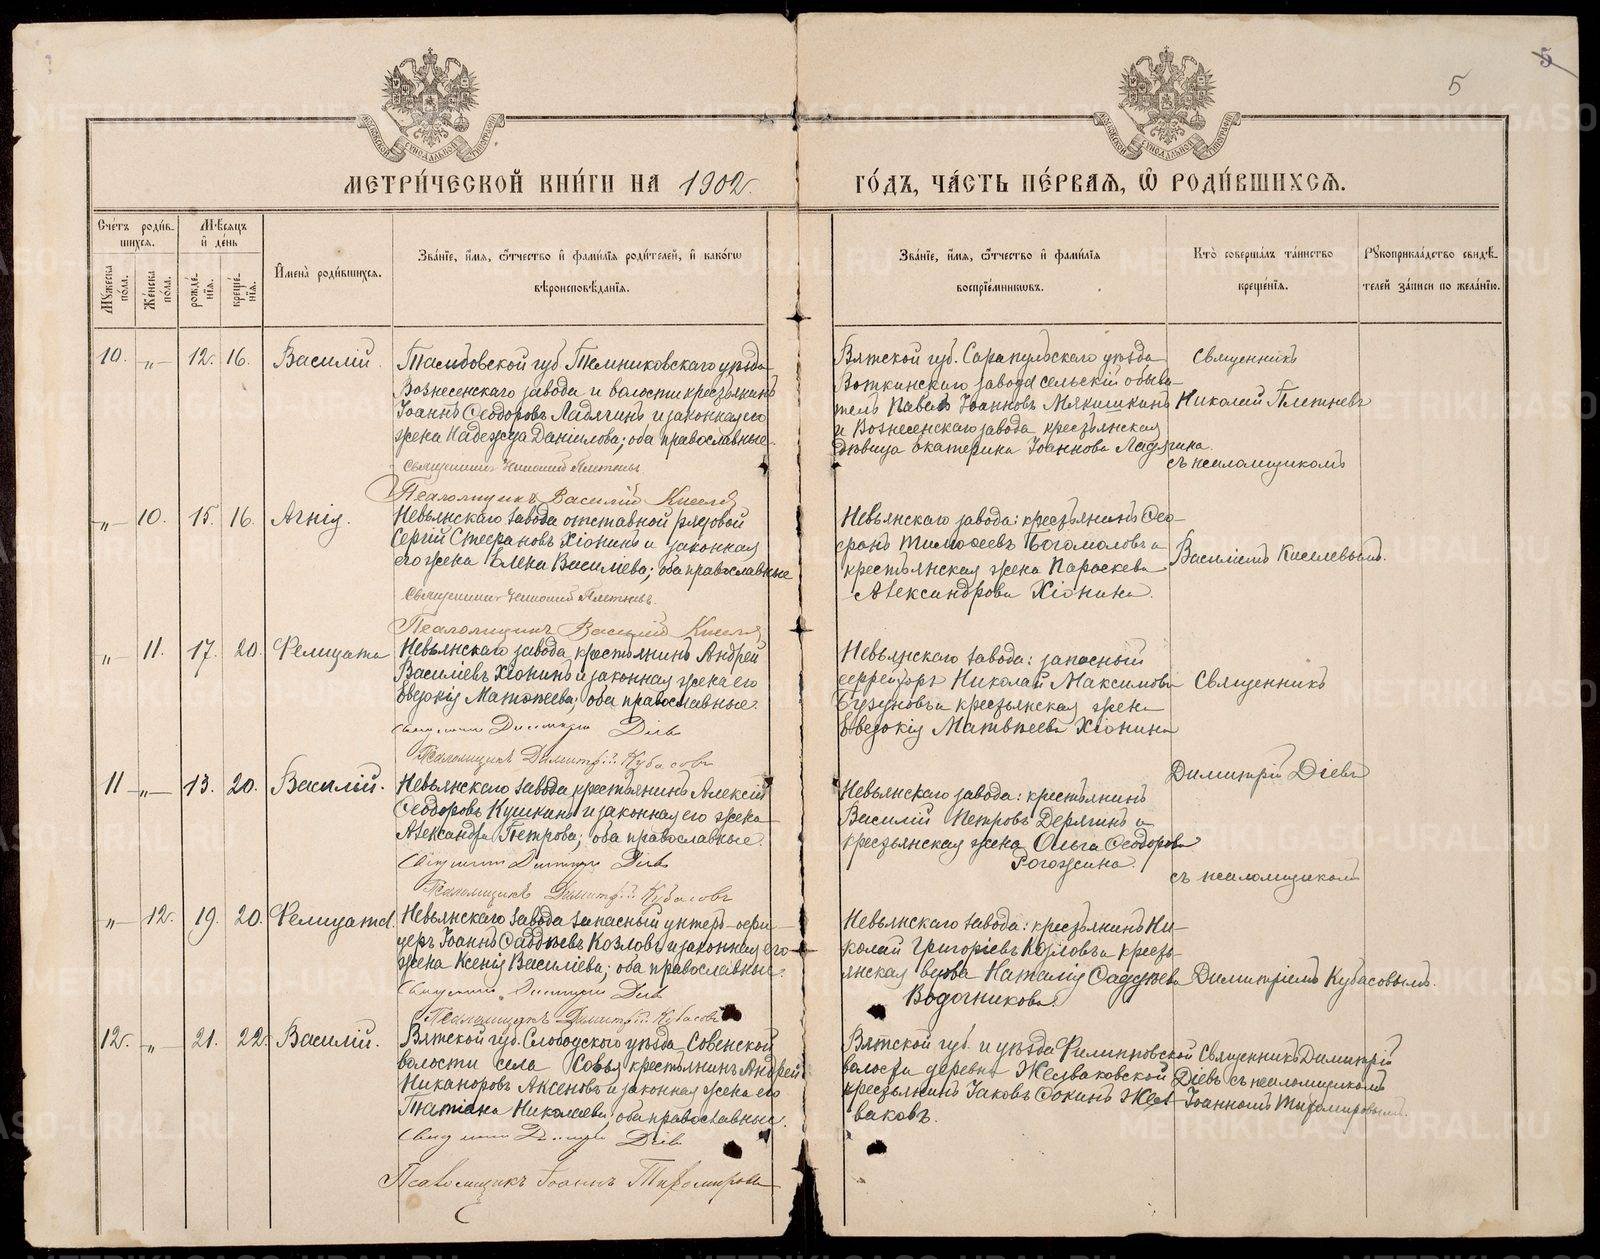 5
5
МЕТРИ́ЧЕСКОЙ КНИ́ГИ НА 1902 г.
ГО́ДЪ, ЧА́СТЬ ПЕ́РВАЯ, Ѽ РОДИ́ВШИХСЯ.
Сче́тъ роди́вшихся.
Мѣ́сяцъ и҆ де́нь
Мꙋ́жеска по́ла.
Же́нска по́ла.
рожде́нїѧ.
креще́нїѧ.
И҆мена̀ роди́вшихся.
Зва́нїе, и҆́мѧ, ѻ҆́тчество и҆ фами́лїѧ роди́телей, и҆ како́гѡ
вѣроисповѣ́данїѧ.
Зва́нїе, и҆́мѧ, ѻ҆́тчество и҆ фами́лїѧ
воспрїе́мниковъ.
Кто̀ соверша́лъ та́инство
креще́нїѧ.
Рꙋкоприкла́дство свидѣ́телей за́писи по жела́нїю.
10. -„- 12. 16. Василій.
Тамбовской губ. Темниковскаго уѣзда
Вознесенскаго завода и волости крестьянинъ
Іоаннъ Ѳеодоровъ Ладягинъ и законная его
жена Надежда Данилова; оба православные.
Священникъ Николай Плетневъ
Псаломщикъ Василій Киселевъ
Вятской губ. Сарапульскаго уѣзда
Воткинскаго завода сельскій обыва-
тель Павелъ Іоанновъ Мякишкинъ
и Вознесенскаго завода крестьянская
дѣвица Екатерина Іоаннова Ладягина.
Священникъ
Николай Плетневъ
съ псаломщикомъ
-„- 10. 15. 16. Агнія.
Невьянскаго завода отставной рядовой
Сергій Стефановъ Хіонинъ и законная
его жена Елена Васильева; оба православные
Священникъ Николай Плетневъ.
Псаломщикъ Василій Киселевъ
Невьянскаго завода: крестьянинъ Ѳео-
фанъ Тимоѳеевъ Богомоловъ и
крестьянская жена Параскева
Александрова Хіонина.
Василіемъ Киселевымъ.
-„- 11. 17. 20. Фелицата
Невьянскаго завода крестьянинъ Андрей
Василіевъ Хіонинъ и законная жена его
Евдокія Матѳеева; оба православные.
Священникъ Димитрій Діевъ
Псаломщикъ Димитрій Кубасовъ
Невьянскаго завода: запасный
Николай Максимовъ
крестьянская жена
Евдокія Матвѣева Хіонина
Священникъ
Димитрій Діевъ
11 -„- 13. 20. Василій.
Невьянскаго завода крестьянинъ Алексій
Ѳеодоровъ Кушкинъ и законная его жена
Александра Петрова; оба православные.
Священникъ Димитрій Діевъ
Псаломщикъ Димитрій Кубасовъ
Невьянскаго завода: крестьянинъ
Василій Петровъ Дерягинъ и
крестьянская жена Ольга Ѳеодорова
Рогожина.
съ псаломщикомъ
-„- 12. 19. 20. Фелицата.
Невьянскаго завода запасный унтеръ-офи-
церъ Іоаннъ Саддѣевъ Козловъ и законная его
жена Ксенія Василіева; оба православные.
Священникъ Димитрій Діевъ
Псаломщикъ Димитрій Кубасовъ
Невьянскаго завода: крестьянинъ Ни-
колай Григоріевъ Козловъ и кресть-
янская вдова Наталія Саддѣева
Водочникова.
Димитріемъ Кубасовымъ.
12. -„- 21. 22. Василій.
Вятской губ. Слободскаго уѣзда Совенской
волости села Совья крестьянинъ Андрей
Никаноровъ Аксеновъ и законная жена его
Татіана Николаева, оба православные.
Священникъ Димитрій Діевъ
Псаломщикъ Іоаннъ Тихомировъ
Вятской губ. и уѣзда Филипповской
волости деревни Жезваковской
крестьянинъ Іаковъ Ѳокинъ Жез-
ваковъ.
Священникъ Димитрій
Діевъ съ псаломщикомъ
Іоанномъ Тихомировымъ.
METRIKI.GASO-URAL.RU